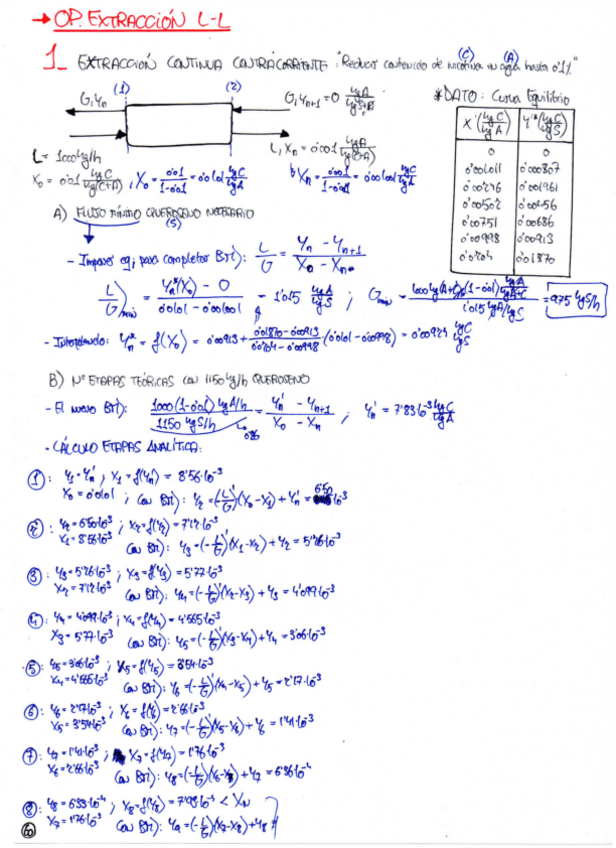 → OP. EXTRACCIÓN L-L
(C) (A)
1_ EXTRACCIÓN CONTINUA CONTRACORRIENTE: "Reducir contenido de nicotina en agua hasta 0'1%"
(1) (2)
G, Yn
G, Yn+1 = 0 kgA
* DATO: Curva Equilibrio
X (kgC/kgA) Y* (kgC/kgS)
0 0
0'001011 0'000807
0'00246 0'001961
0'00502 0'00456
0'00751 0'00686
0'00998 0'00913
0'0204 0'01870
L, Xn = 0'001 kgA/kg(C+A)
L = 1000 kg/h
X0 = 0'01 kgC/kg(C+A), X0 = 0'01/1-0'01 = 0'0101 kgC/kgA
Xn = 0'001/1-0'001 = 0'001001 kgC/kgA
A) FLUJO mínimo QUEROSENO NECESARIO
(S)
- Imponer eq; para completar BM): L/G = Yn - Yn+1 / X0 - Xn
L/G)min = Yn*(X0) - 0 / 0'0101 - 0'001001 = 1'015 kgA/kgS ; Gmin = 1000 kg(A+C)/h (1-0'01) kgA/kg A+C / 1'015 kgA/kgS = 975 kgS/h
- Interpolando: Yn* = f(X0) = 0'00913 + 0'01870-0'00913 / 0'0204-0'00998 (0'0101-0'00998) = 0'00924 kgC/kgS
B) Nº ETAPAS TEÓRICAS con 1150 kg/h QUEROSENO
- El nuevo BM): 1000 (1-0'01) kgA/h / 1150 kgS/h = Yn' - Yn+1 / X0 - Xn ; Yn' = 7'83·10-3 kgC/kgA
0'86
- CÁLCULO ETAPAS ANALÍTICA:
①: Y1 = Yn' , X1 = f(Yn') = 8'56·10-3
X0 = 0'0101 ; Con BM): Y2 = (-L/G)'(X0-X1) + Yn' = 6'50·10-3
②: Y2 = 6'50·10-3 ; X2 = f(Y2) = 7'12·10-3
X1 = 8'56·10-3 Con BM): Y3 = (-L/G)'(X1-X2) + Y2 = 5'26·10-3
③: Y3 = 5'26·10-3 ; X3 = f(Y3) = 5'77·10-3
X2 = 7'12·10-3 Con BM): Y4 = (-L/G)'(X2-X3) + Y3 = 4'099·10-3
④: Y4 = 4'099·10-3 ; X4 = f(Y4) = 4'565·10-3
X3 = 5'77·10-3 Con BM): Y5 = (-L/G)'(X3-X4) + Y4 = 3'06·10-3
⑤: Y5 = 3'06·10-3 ; X5 = f(Y5) = 3'54·10-3
X4 = 4'565·10-3 Con BM): Y6 = (-L/G)'(X4-X5) + Y5 = 2'17·10-3
⑥: Y6 = 2'17·10-3 ; X6 = f(Y6) = 2'66·10-3
X5 = 3'54·10-3 Con BM): Y7 = (-L/G)'(X5-X6) + Y6 = 1'41·10-3
⑦: Y7 = 1'41·10-3 ; X7 = f(Y7) = 1'76·10-3
X6 = 2'66·10-3 Con BM): Y8 = (-L/G)'(X6-X7) + Y7 = 6'36·10-4
⑧: Y8 = 6'33·10-4 ; X8 = f(Y8) = 7'98·10-4 < XN
X7 = 1'76·10-3 Con BM): Y9 = (-L/G)'(X7-X8) + Y8
60